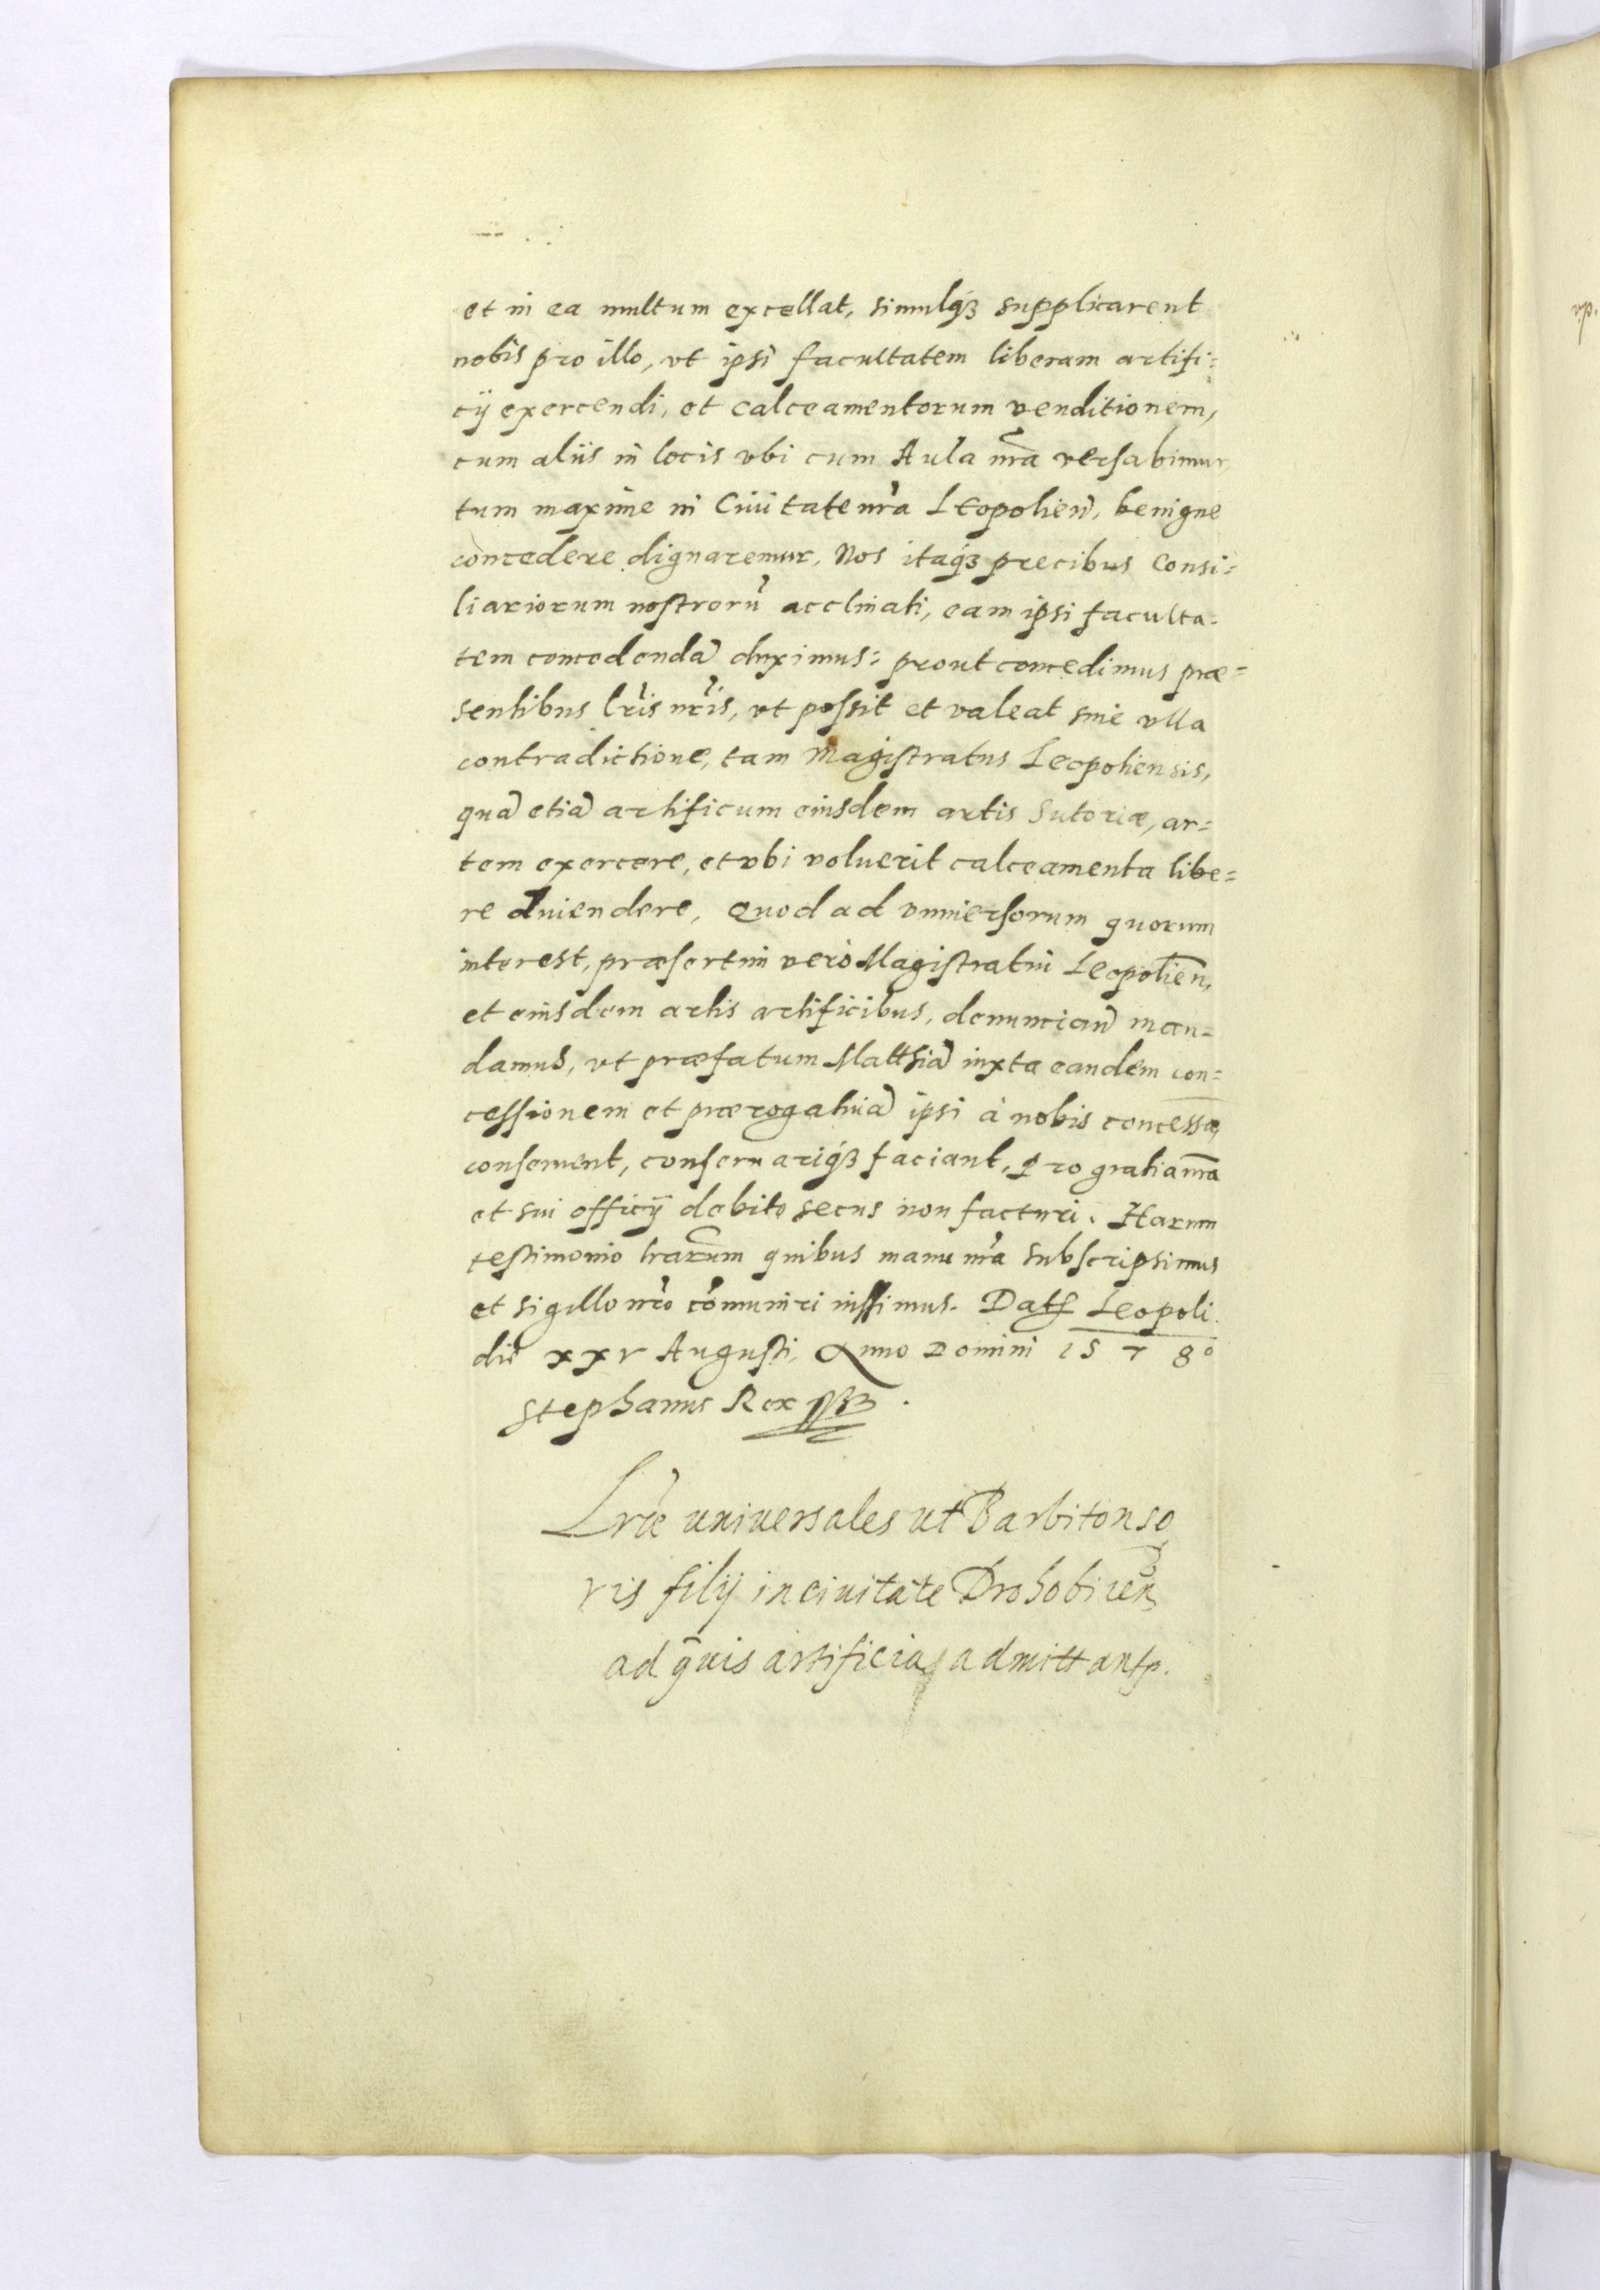 et in ea multum excellat, simulq̃ supplicarent
nobis pro illo, vt ipsi facultatem liberam artifi:
cij exercendi, et calceamentorum venditionem,
cum aliis in locis vbi cum Aula nr̃a versabimur
tum maxime in Ciuitate nr̃a Leopolien̄, benigne
concedere dignaremur, Nos itaq̃ precibus Consi:
liariorum nostrorū acclinati, eam ipsi faculta:
tem concedendā duximus: prout concedimus præ=
sentibus lr̃is nr̃is, vt possit et valeat sine vlla
contradictione, tam Magistratus Leopoliensis,
quā etiā artificum eiusdem artis Sutoriæ, ar=
tem exercere, et vbi voluerit calceamenta libe=
re diuendere, Quod ad vniuersorum quorum
interest, præsertim verò Magistratui Leopolien̄,
et eiusdem artis artificibus, denunciañ man=
damus, vt præfatum Matthiā iuxta eandem con=
cessionem et prærogatiuā ipsi à nobis concessā,
conseruent, conseruariq̃ faciant, pro gratia nr̃a
et sui officij debito secus non facturi. Harum
testimonio lrarum quibus manu nr̃a subscripsimus
et sigillo nr̃o cōmuniri iussimus. Dat Leopoli
die xxv Augusti, Anno Domini 1578o
Stephanus Rex
Lr̃æ uniuersales ut Barbitonso
ris filij in ciuitate Drohobicen̄
ad quis artificia admittantr.